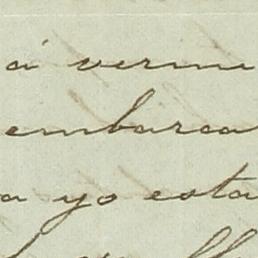 á verme
embarca
a yo esta